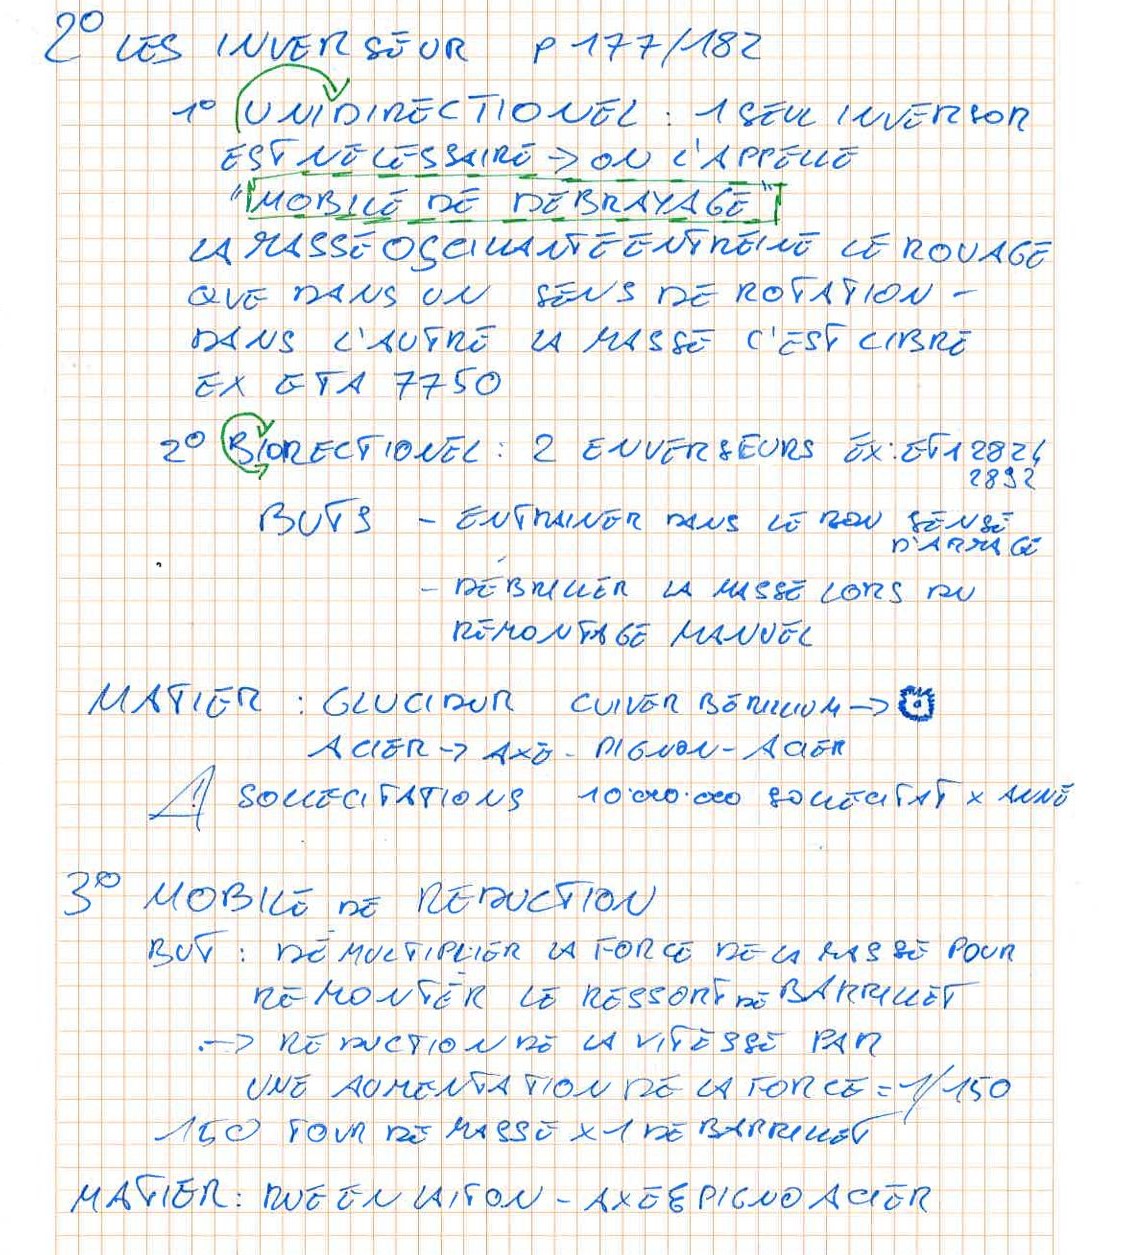 2° LES INVERSEUR P 177/182
1° UNIDIRECTIONEL : 1 SEUL INVERSOR
EST NECESSAIRE -> ON L'APPELLE
"MOBILE DE DEBRAYAGE"
LA MASSE OSCILLANTE ENTREINE LE ROUAGE
QUE DANS UN SENS DE ROTATION -
DANS L'AUTRE LA MASSE C'EST LIBRE
EX ETA 7750
2° BIDRECTIONEL : 2 ENVERSEURS EX: ETA 2824
2892
BUTS - ENTRAINER DANS LE BON SENSE
D'ARMAGE
- DEBRILLER LA MASSE LORS DU
REMONTAGE MANUEL
MATIER : GLUCIDUR CUIVER BERILLIUM ->
ACIER -> AXE - PIGNON - ACIER
SOLLECITATIONS 10.000.000 SOLLECITAT x ANNÉ
3° MOBILE DE REDUCTION
BUT : DEMULTIPLIER LA FORCE DE LA MASSE POUR
REMONTER LE RESSORT DE BARRILLET
-> REDUCTION DE LA VITESSE PAR
UNE AUMENTATION DE LA FORCE = 1/150
150 TOUR DE MASSE x 1 DE BARRILLET
MATIER : RUE EN LAITON - AXE & PIGNO ACIER